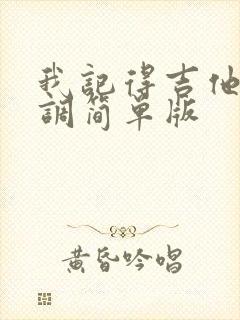 我記得吉他
調简单版
黄昏吟唱